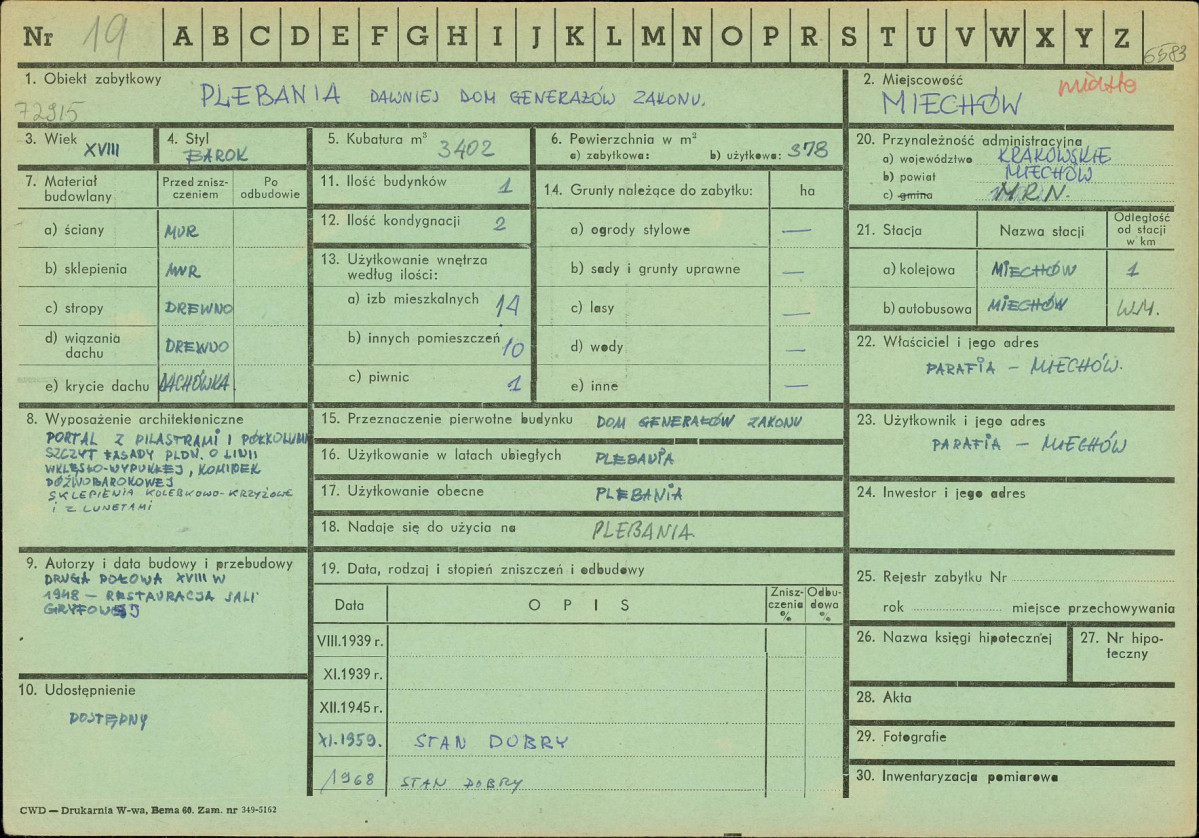 Nr 19 A B C D E F G H I J K L M N O P R S T U V W X Y Z 6583
1. Obiekt zabytkowy
72915
PLEBANIA DAWNIEJ DOM GENERAŁÓW ZAKONU.
2. Miejscowość miasto
MIECHÓW
3. Wiek
XVIII
4. Styl
BAROK
5. Kubatura m³
3402
6. Powierzchnia w m²
a) zabytkowa: b) użytkowa: 378
20. Przynależność administracyjna
a) województwo KRAKOWSKIE
b) powiat MIECHÓW
c) gmina M.R.N.
7. Materiał budowlany
Przed znisz-
czeniem
Po
odbudowie
a) ściany MUR
b) sklepienia MUR
c) stropy DREWNO
d) wiązania
dachu DREWNO
e) krycie dachu DACHÓWKA
11. Ilość budynków 1
12. Ilość kondygnacji 2
13. Użytkowanie wnętrza
według ilości:
a) izb mieszkalnych 14
b) innych pomieszczeń 10
c) piwnic 1
14. Grunty należące do zabytku: ha
a) ogrody stylowe —
b) sady i grunty uprawne —
c) lasy —
d) wody —
e) inne —
21. Stacja Nazwa stacji
Odległość
od stacji
w km
a) kolejowa MIECHÓW 1
b) autobusowa MIECHÓW W.M.
22. Właściciel i jego adres
PARAFIA – MIECHÓW.
8. Wyposażenie architektoniczne
PORTAL Z PILASTRAMI I PÓŁKOLUMN
SZCZYT FASADY PŁDN. O LINII
WKLĘSŁO-WYPUKŁEJ, KOMINEK
PÓŹNOBAROKOWEJ
SKLEPIENIA KOLEBKOWO-KRZYŻOWE
I Z LUNETAMI
15. Przeznaczenie pierwotne budynku DOM GENERAŁÓW ZAKONU
16. Użytkowanie w latach ubiegłych PLEBANIA
17. Użytkowanie obecne PLEBANIA
18. Nadaje się do użycia na PLEBANIA
23. Użytkownik i jego adres
PARAFIA – MIECHÓW
24. Inwestor i jego adres
9. Autorzy i data budowy i przebudowy
DRUGA POŁOWA XVIII W
1948 – RESTAURACJA SALI
GRYFOWEJ
19. Data, rodzaj i stopień zniszczeń i odbudowy
Data OPIS
Znisz-
czenia
%
Odbu-
dowa
%
VIII.1939 r.
XI.1939 r.
XII.1945 r.
XI.1959. STAN DOBRY
1968 STAN DOBRY
25. Rejestr zabytku Nr
rok miejsce przechowywania
26. Nazwa księgi hipotecznej
27. Nr hipo-
teczny
28. Akta
29. Fotografie
30. Inwentaryzacja pomiarowa
10. Udostępnienie
DOSTĘPNY
CWD — Drukarnia W-wa, Bema 60. Zam. nr 349-5162